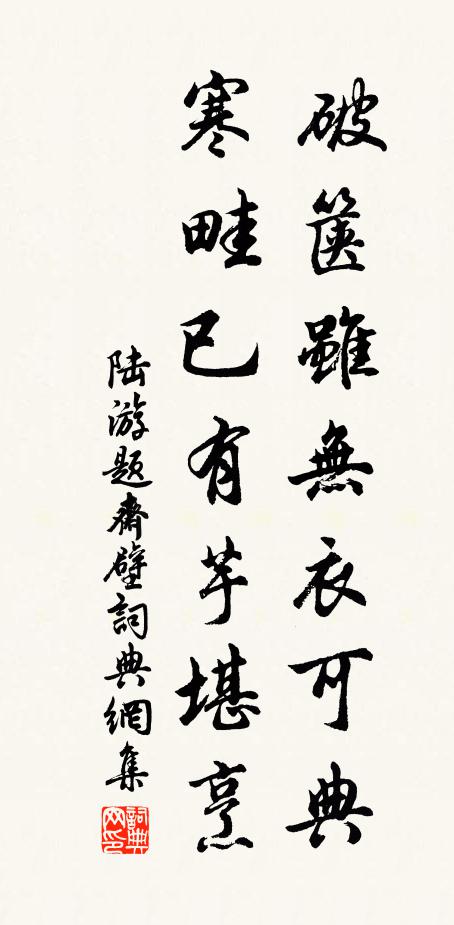 破篋雖無衣可典
寒畦已有芋堪烹
陸游題齋壁詞典網集
詞典网印